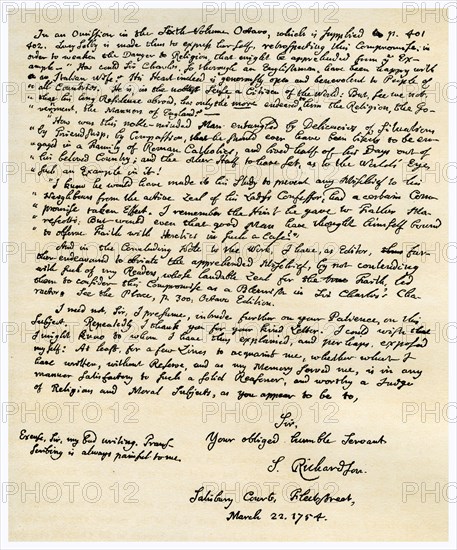 In an Omission in the Sixth Volume Octavo, which is supplied in p. 401
402. Lucy Selby is made thus to express herself, retrospecting this Compromise, in
order to weaken the Danger to Religion, that might be apprehended from ye Ex-
ample. "How could Sir Charles, so thorough an Englishman, have been happy with
an Italian Wife? His Heart indeed is generously open and benevolent to People of
all Countries. He is in the noblest Sense a Citizen of the World: But, see we not
that his long Residence abroad, has only the more endeared him the Religion, the Go-
vernment, the Manners of England?—
"How was this noble-minded Man entangled by Delicacies of Situation,
by Friendship, by Compassion, that he should ever have been likely to be en-
gaged in a Family of Roman Catholics, and lived half of his Days out of
his beloved Country; and the other Half to have set, as to the World's Eye,
such an Example in it!
"I know he would have made it his Study to prevent any Mischief to his
Neighbours from the active Zeal of his Lady's Confessor, had a certain Com-
promise taken Effect. I remember the Hint he gave to Father Ma-
rescotti. But would even that good Man have thought himself bound
to observe Faith with Heretics in such a Case?"
And in the Concluding Note to the Work, I have, as Editor, fur-
ther endeavoured to obviate the apprehended Mischief, by not contending
with such of my Readers, whose laudable Zeal for the true Faith, led
them to consider this Compromise as a Blemish in Sir Charles's Cha-
racter. See the Place, p. 300, Octavo Edition.
I need not, Sir, I presume, intrude further on your Patience, on this
Subject. Repeatedly I thank you for your kind Letter. I could wish that
I might know to whom I have thus explained, and perhaps, exposed
myself: At least, for a few Lines to acquaint me, whether what I
have written, without Reserve, and as my Memory served me, is in any
manner Satisfactory to such a solid Reasoner, and worthy a Judge
of Religious and Moral Subjects, as you appear to be, to,
Sir,
Your obliged humble Servant
S. Richardson.
Excuse, Sir, my bad writing. Tran-
scribing is always painful to me.
Salisbury Court, Fleetstreet,
March 22. 1754.
PHOTO12